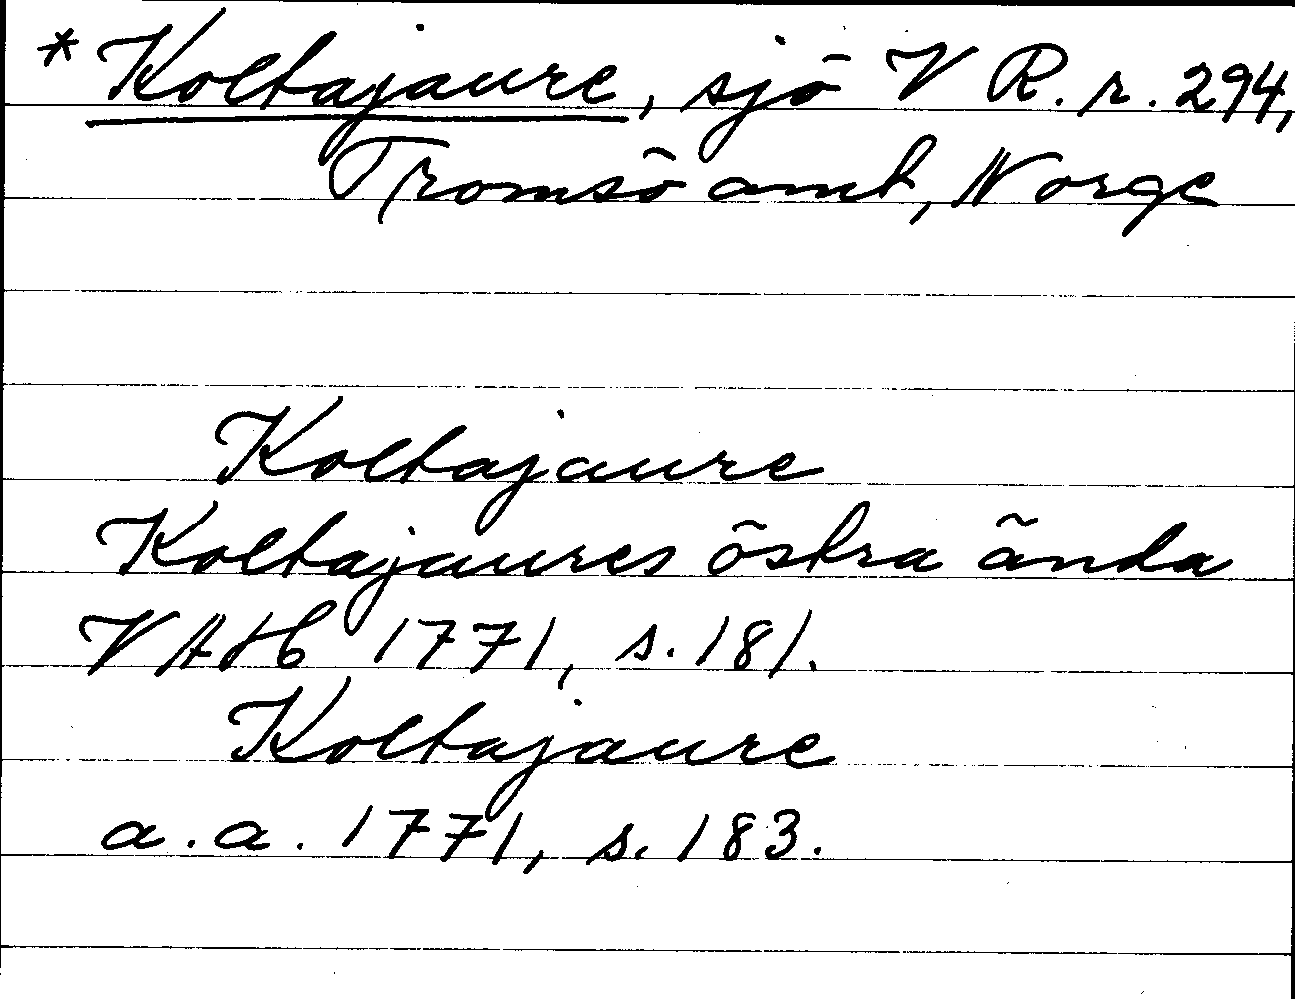 * Koltajaure, sjö V R. r. 294,
Tromsö amt, Norge
Koltajaure
Koltajaures östra ända
VAHb 1771, s. 181.
Koltajaure
a. a. 1771, s. 183.